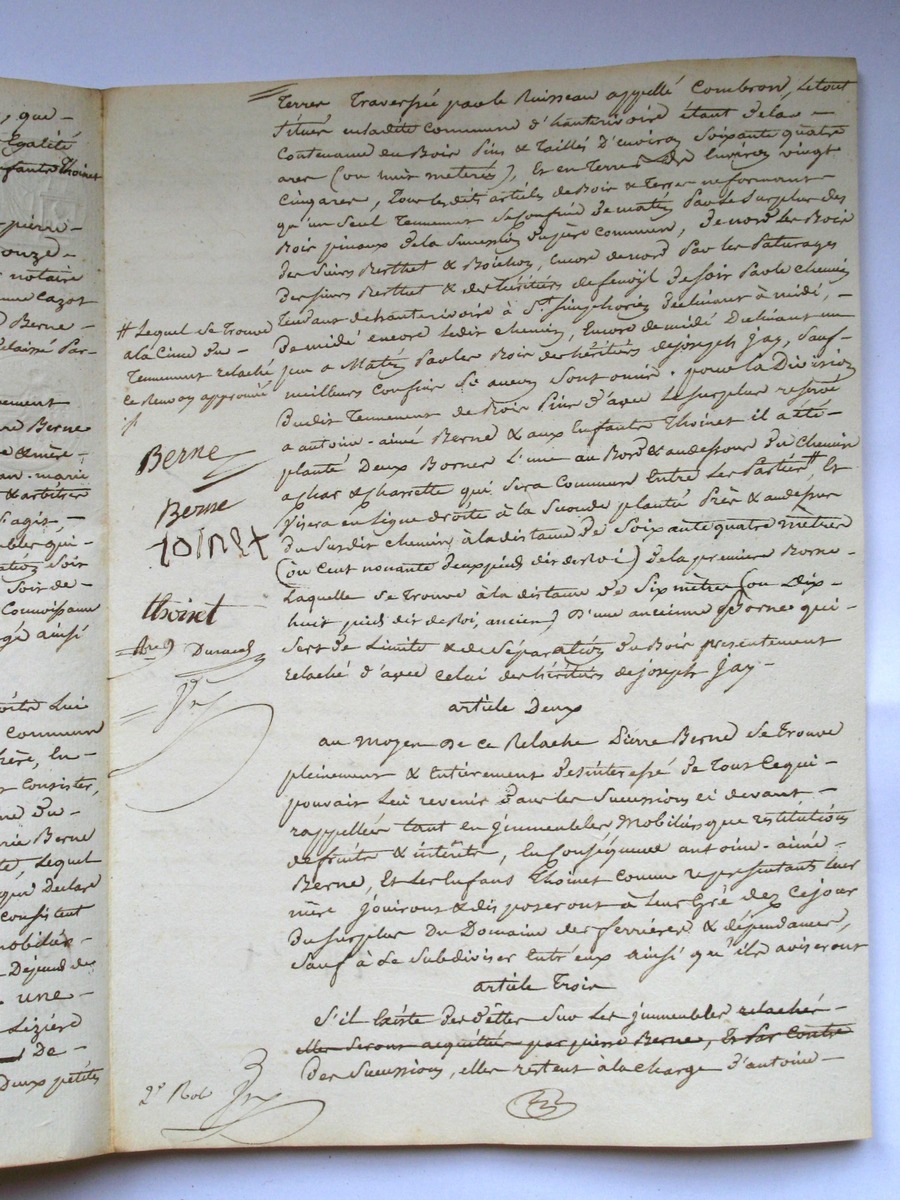 , que -
Egalité
enfants Thoinet
pierre
onze -
notaire
Cazot
Berne -
Relaissé par-
Berne
& mère -
marie
& arbitres
s'agit -
qui -
soit
soit de-
Connoissance
ainsi
Lui
commun
En -
consister,
Du -
Berne
Lequel
Declare
consistent
mobiliers -
Dépend des
une -
Lizière
De -
Deux petites
Terres Traversée par le Ruisseau appellé Combron, Letout
Situés en ladite Commune d'hauterivoire étant de la -
Contenance en Bois Pins & Taillis D'environ Soixante quatre
ares (ou huit meterés), Et en Terres de Environ vingt
Cinq ares, Tous lesdits articles de Bois & Terres ne formant
qu'un Seul Tennement Se Confine de matin Par Le Surplus des
Bois pinaux de la Succession du père Commun, de nord les Bois
des Sieurs Berthet & Boichon, Encore de nord Par les Paturages
des sieurs Berthet & des héritiers de de soir Par le Chemin
Tendant de hauterivoire à St. Simphorien declinant à midi, -
De midi encore ledit chemin, Encore de midi Declinant un
peu a Matin Par les Bois des héritiers de joseph Jay, Sauf-
meilleurs Confins Si aucun Sont omis. pour la Division
Dudit Tennement de Bois Pins d'avec Le Surplus reservé
a antoine-aimé Berne & aux Enfants Thoinet il a été -
planté Deux Bornes L'une au Bord & audessous du Chemin
a Char & Charrette qui Sera Commun Entre Les Parties #, Et
Visera en Ligne droite à la Seconde planté Près & audessus
du Susdit chemin à la distance de Soixante quatre mètres
(ou Cent nonante deux pieds dits de Roi) de la premiere Borne -
Laquelle se Trouve à la distance de Six mètres (ou Dix
huit pieds dits de Roi, anciens) D'une ancienne Borne qui -
Sert de Limite & de Séparation du Bois presentement
relaché d'avec celui des héritiers de joseph Jay -
# Lequel se Trouve
a la Cime du -
Tennement relaché
Ce Renvoy approuvé
Berne
Berne
thoinet
Durand
article Deux
au moyen de ce Relache Pierre Berne se Trouve
pleinement & Entièrement desinteressé de Tout Ce qui -
pouvait Lui revenir Dans les Successions ci devant -
rappellées tant en jmmeubles Mobiliers que restitutions
de fruits & intérêts, En Conséquence antoine-aimé-
Berne, Et Les Enfans Thoinet comme representants leur
mère jouiront & disposeront à Leur Gré des Ce jour
du surplus du Domaine des ferrières & dépendances,
Sauf à Le Subdiviser Entr'eux ainsi qu'ils aviseront
article Trois
S'il Existe des dettes Sur Les jmmeubles relachés -
elles seront acquittées par pierre Berne, Et Par Contre
Des Successions, elles restent à la charge d'antoine -
2e Role